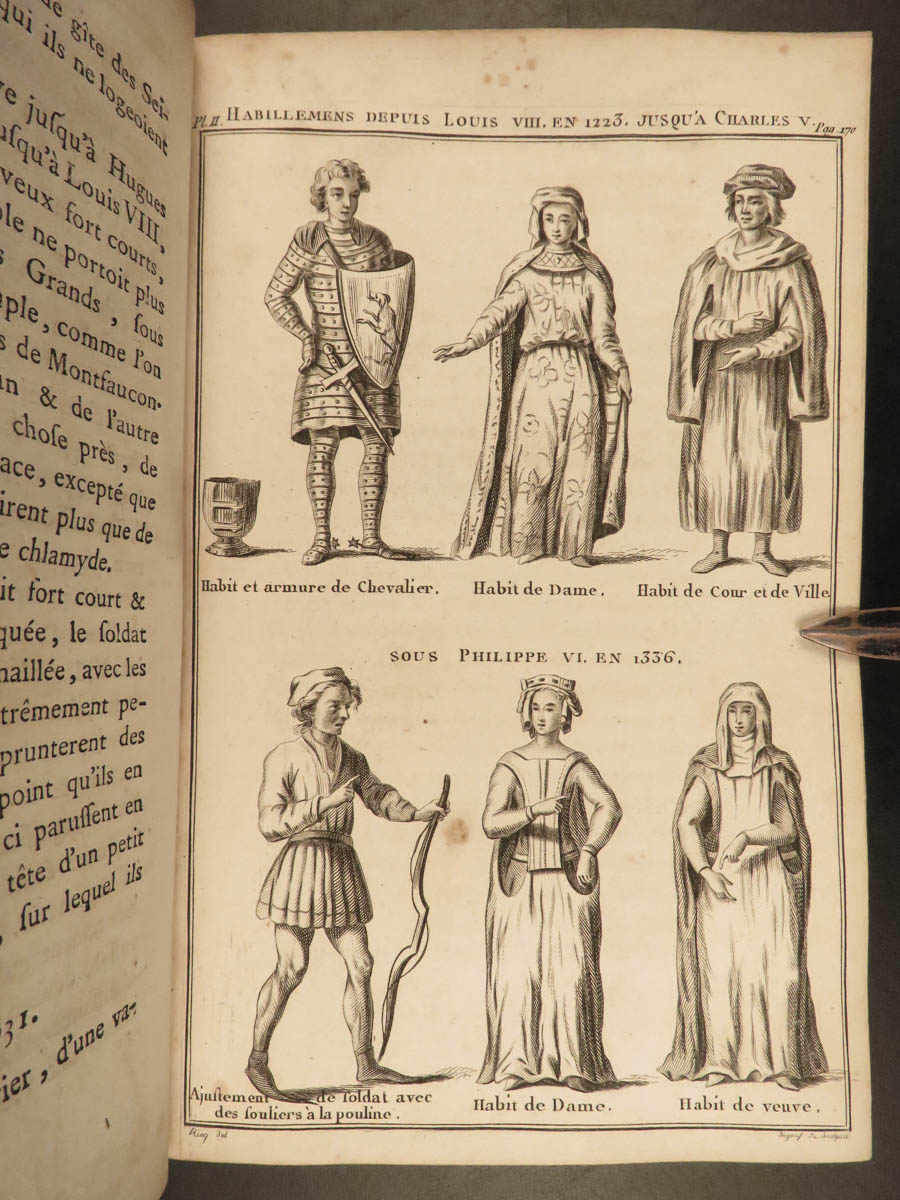 de gîte des Sei-
qui ils ne logeoient
jusqu'à Hugues
jusqu'à Louis VIII,
veux fort courts,
ple ne portoit plus
Grands, sous
comme l'on
s de Montfaucon.
& de l'autre
chose près, de
ace, excepté que
irent plus que de
e chlamyde.
it fort court &
quée, le soldat
maillée, avec les
trêmement pe-
prunterent des
point qu'ils en
ci parussent en
tête d'un petit
, sur lequel ils
31.
ier, d'une va-
Pl. II. HABILLEMENS DEPUIS LOUIS VIII. EN 1223. JUSQU'A CHARLES V. Pag. 170
Habit et armure de Chevalier.
Habit de Dame.
Habit de Cour et de Ville
SOUS PHILIPPE VI. EN 1336.
Ajustement de soldat avec
des souliers à la pouline.
Habit de Dame.
Habit de veuve.
del
Sculpsit